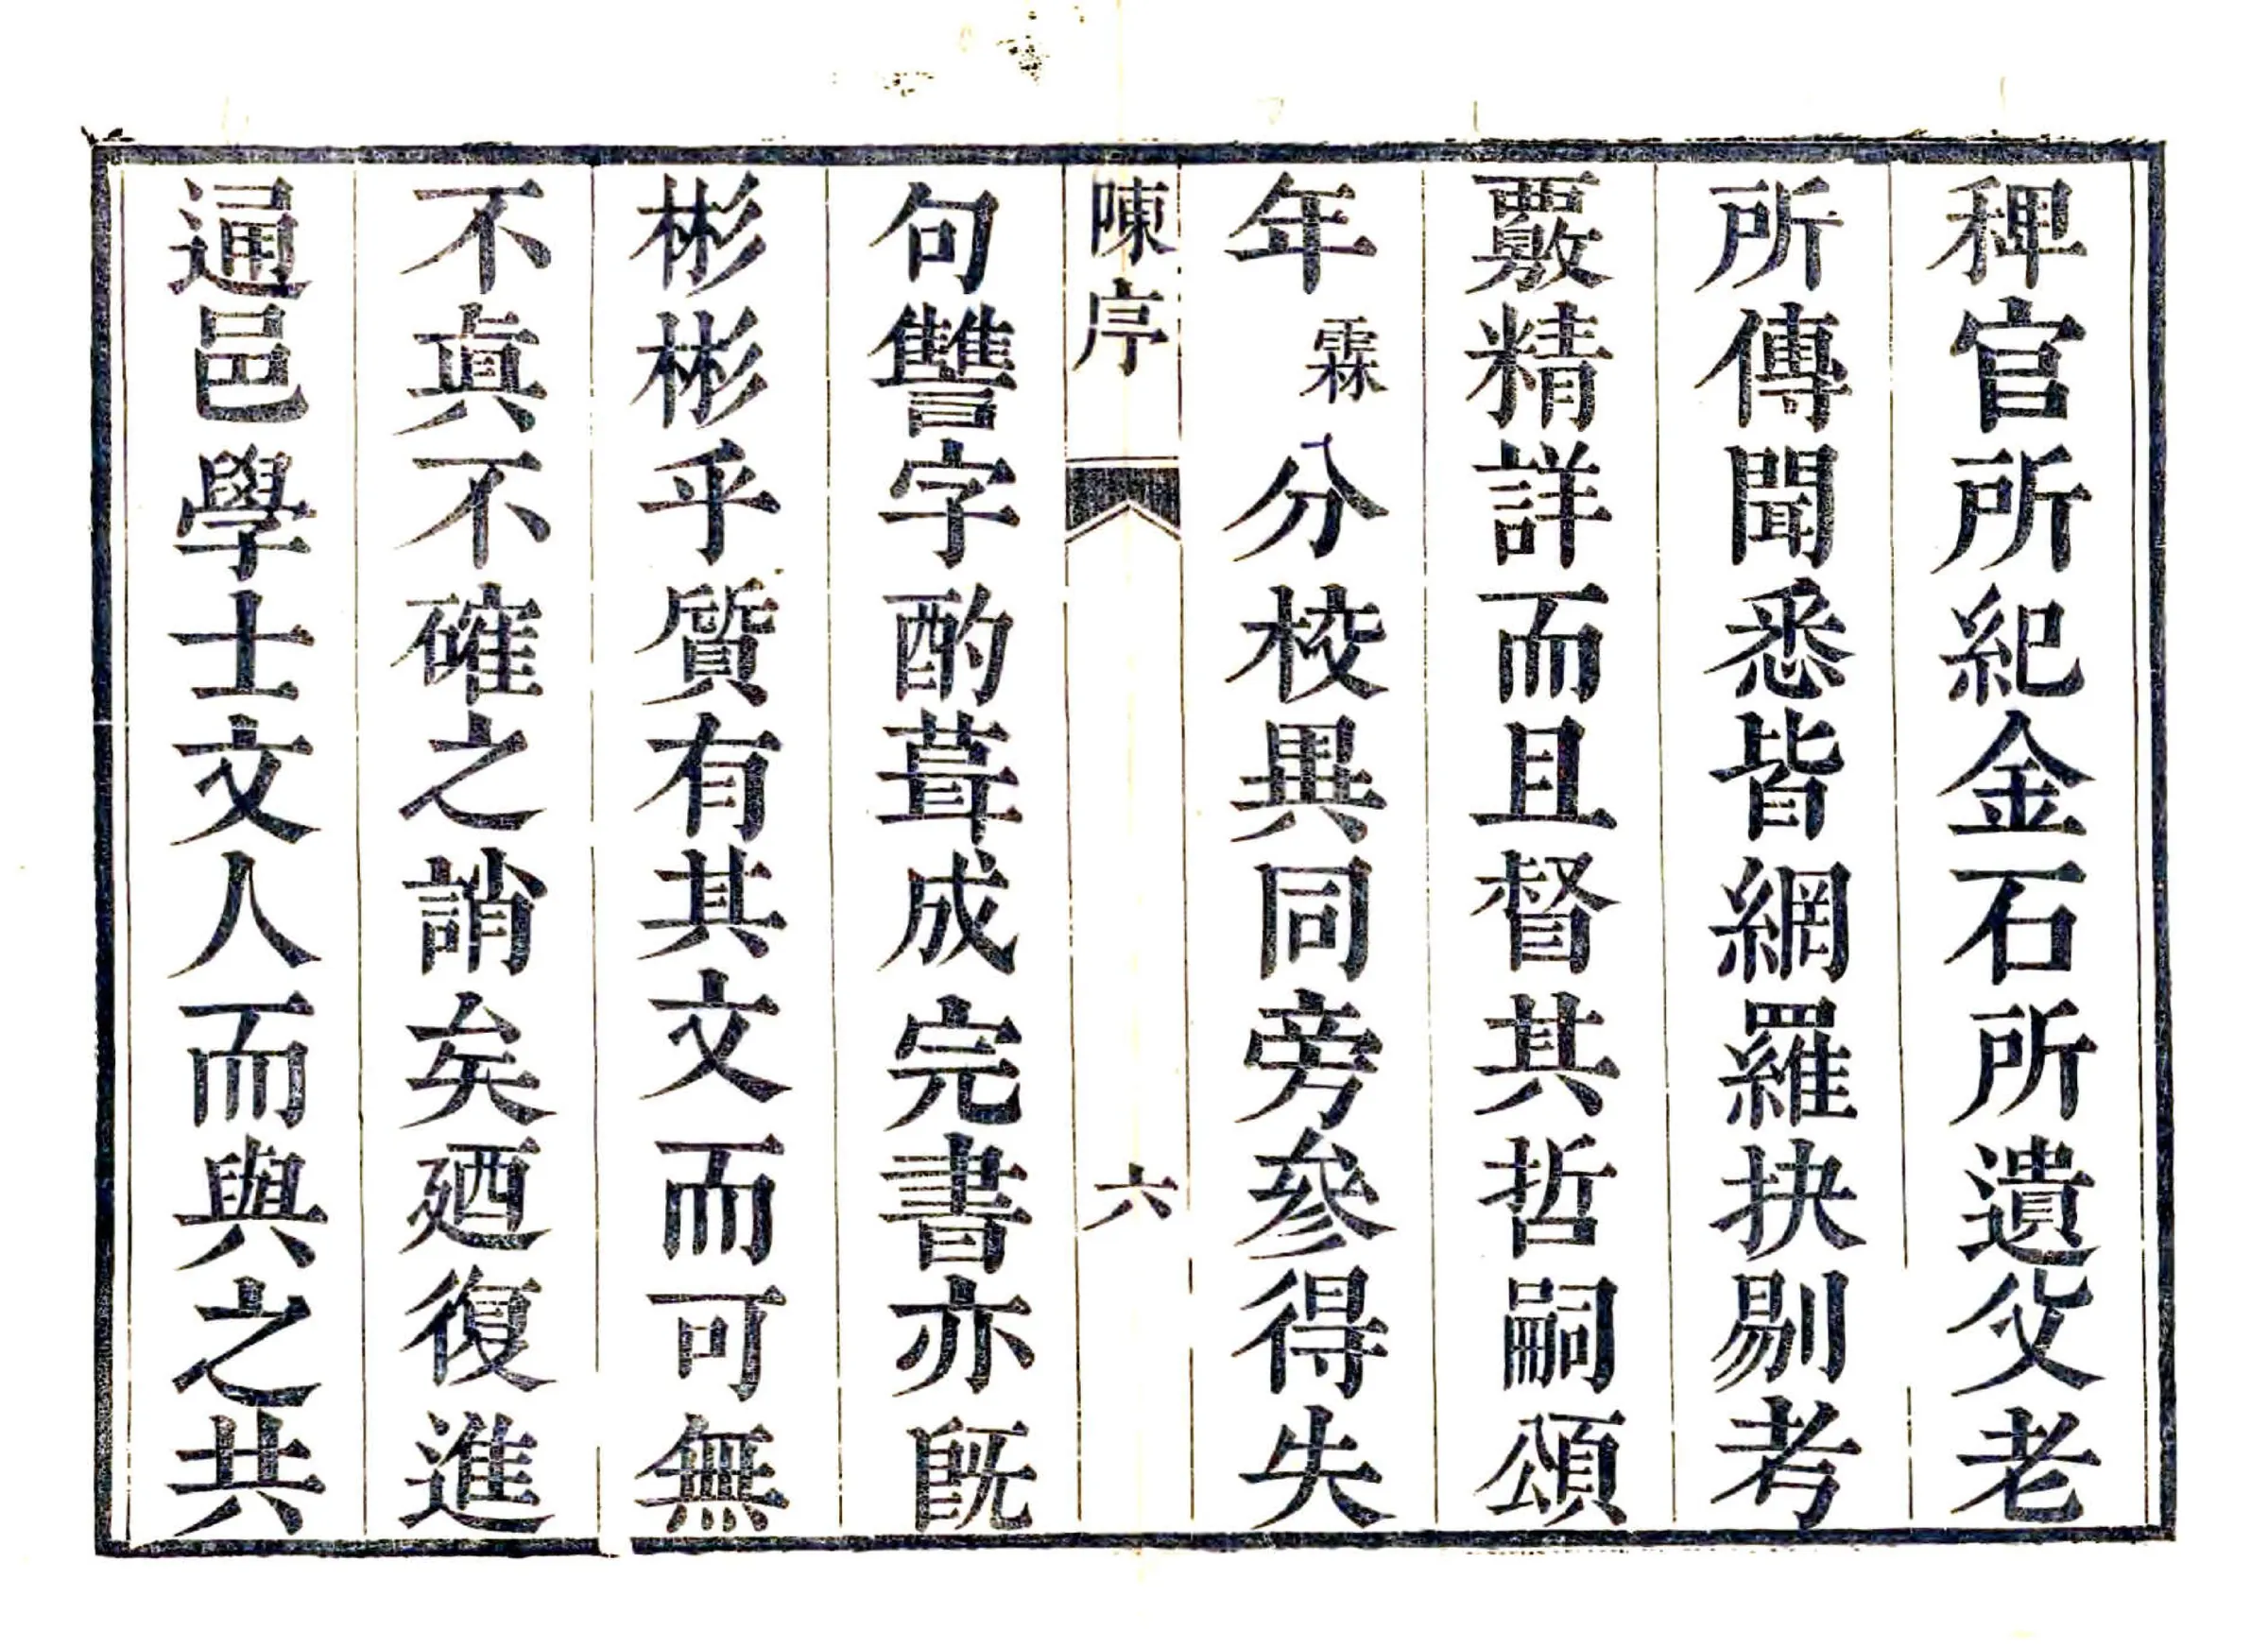 稗官所紀金石所遺父老
所傳聞悉皆網羅抉剔考
覈精詳而且督其哲嗣頌
年霖分校異同旁參得失
陳序 六
句讐字酌葺成完書亦既
彬彬乎質有其文而可無
不眞不確之誚矣廼復進
通邑學士文人而與之共